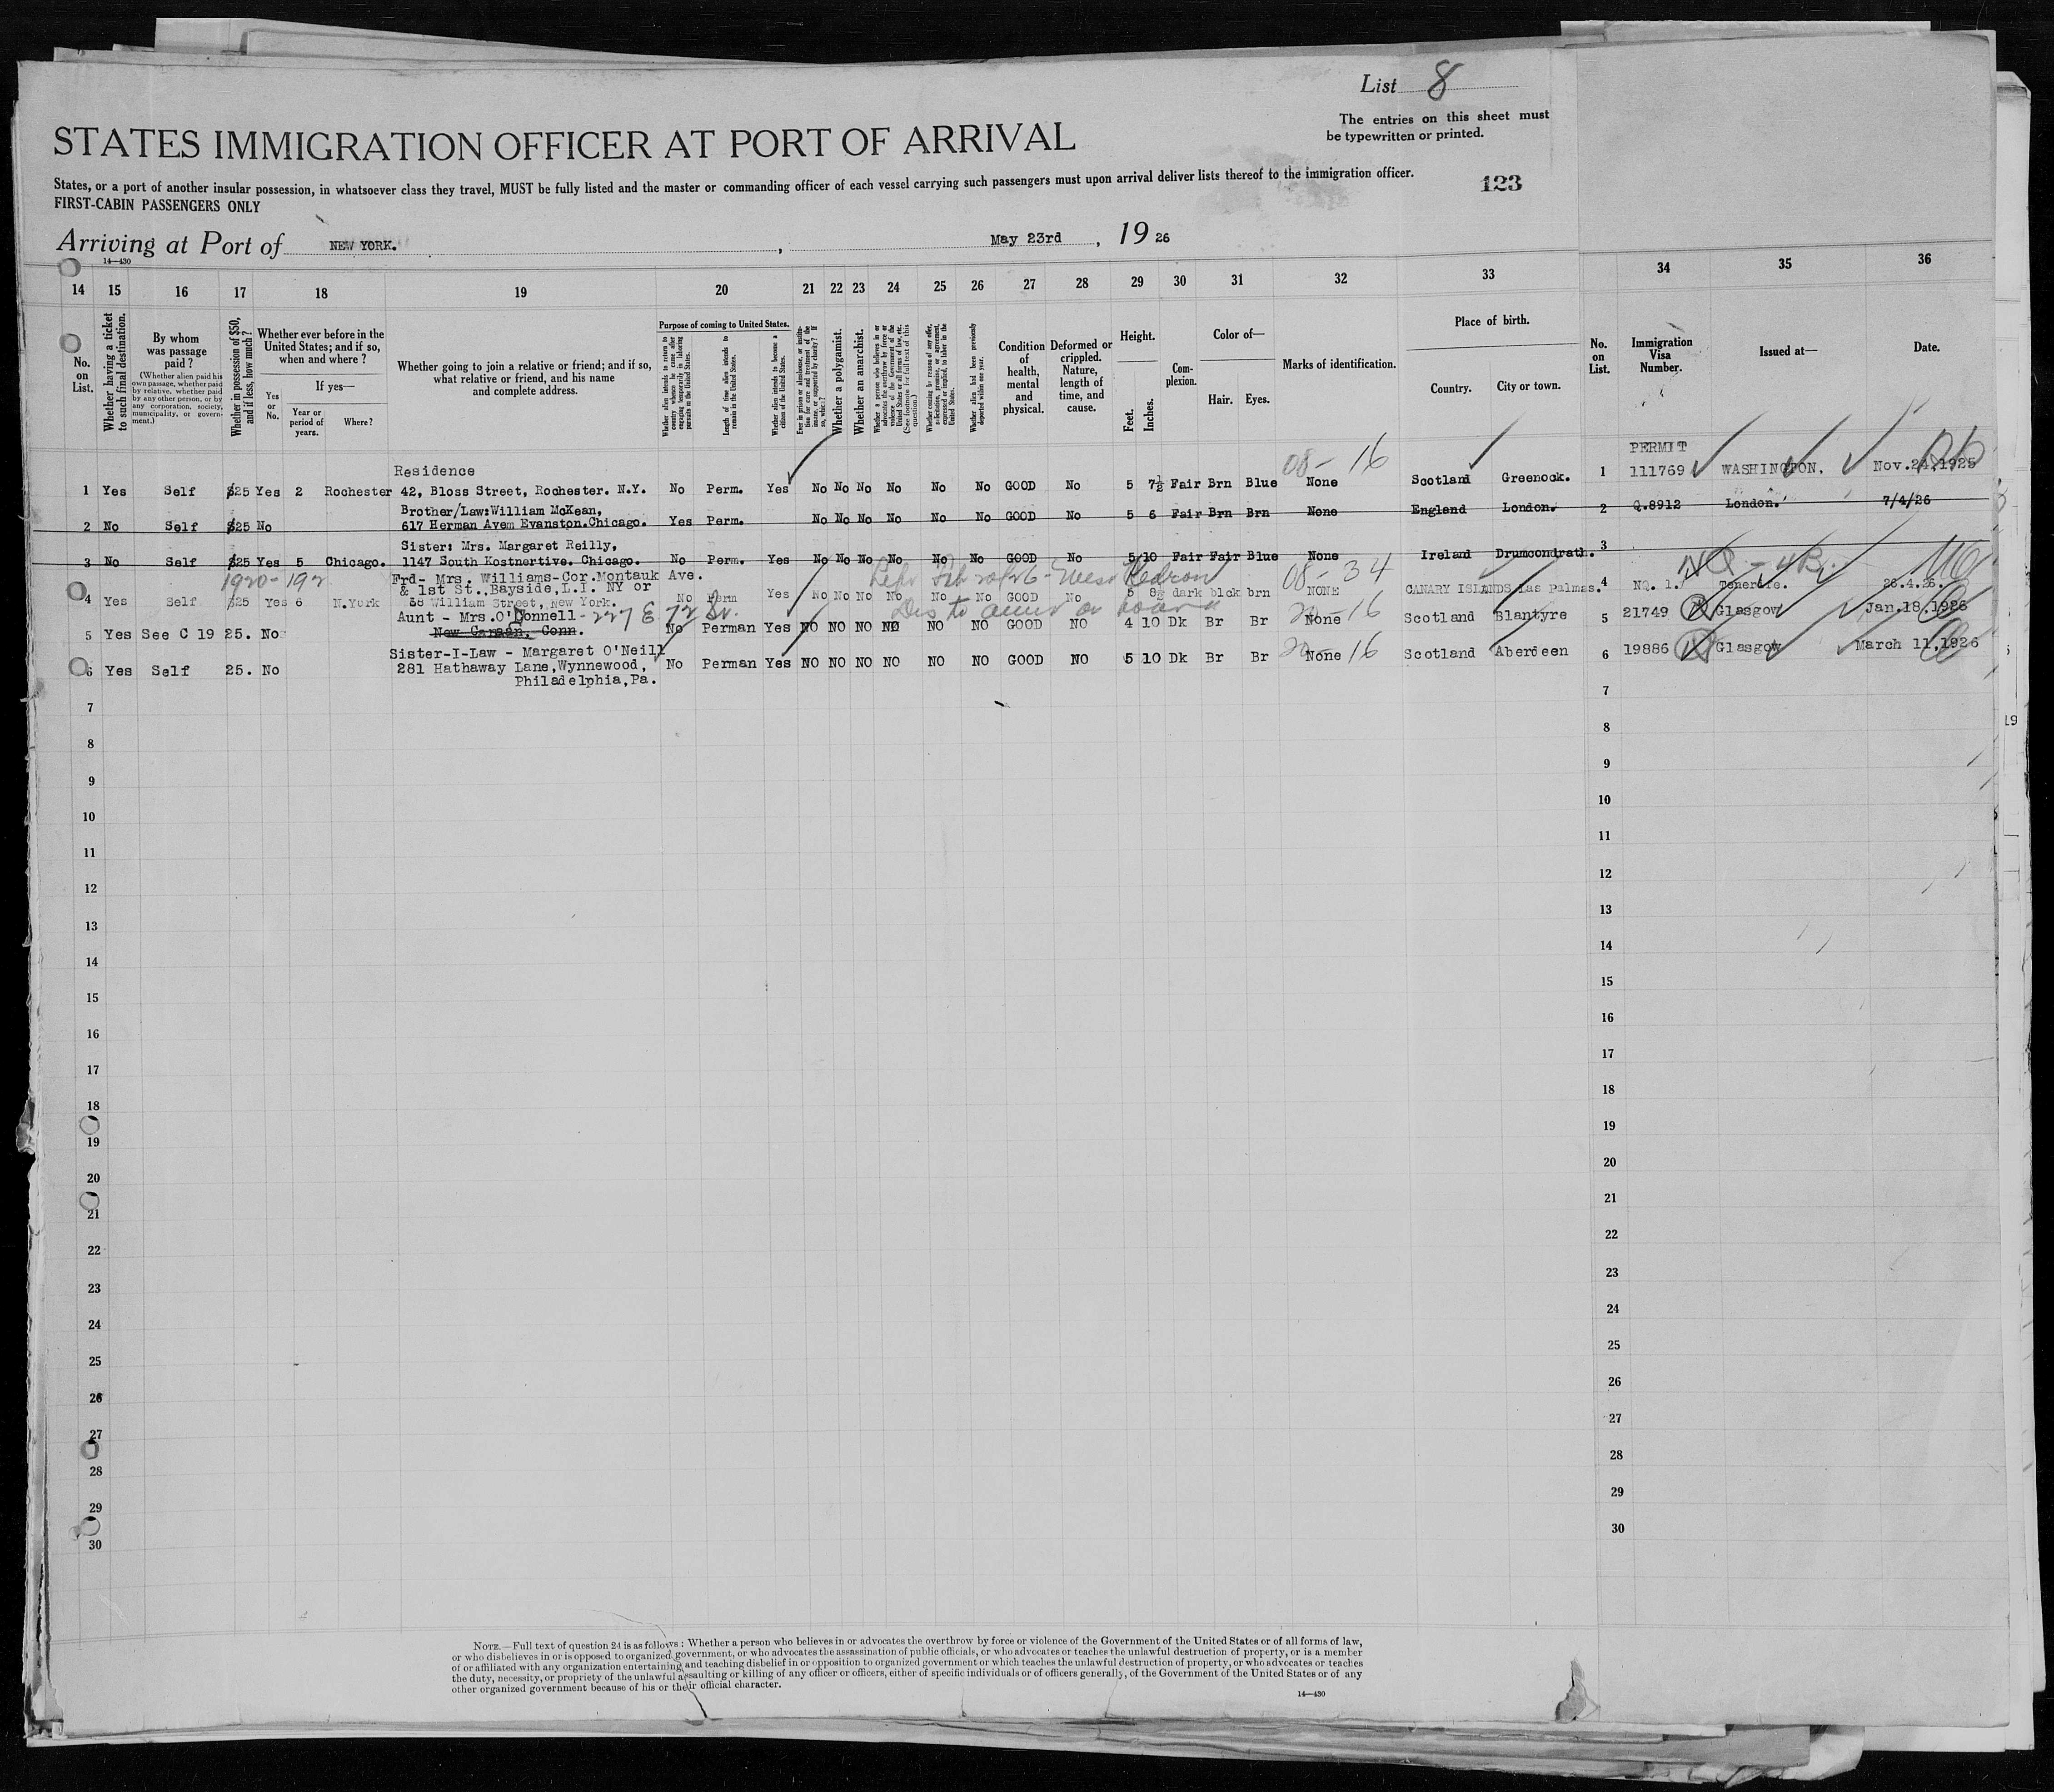 List 8
The entries on this sheet must
be typewritten or printed.
STATES IMMIGRATION OFFICER AT PORT OF ARRIVAL
States, or a port of another insular possession, in whatsoever class they travel, MUST be fully listed and the master or commanding officer of each vessel carrying such passengers must upon arrival deliver lists thereof to the immigration officer.
123
FIRST-CABIN PASSENGERS ONLY
Arriving at Port of NEW YORK. , May 23rd , 19 26
14—430
14 15 16 17 18 19 20 21 22 23 24 25 26 27 28 29 30 31 32 33 34 35 36
No. on List.
Whether having a ticket to such final destination.
By whom was passage paid?
(Whether alien paid his own passage, whether paid by relative, whether paid by any other person, or by any corporation, society, municipality, or government.)
Whether in possession of $50, and if less, how much?
Whether ever before in the United States; and if so, when and where?
Yes or No.
If yes—
Year or period of years.
Where?
Whether going to join a relative or friend; and if so, what relative or friend, and his name and complete address.
Purpose of coming to United States.
Length of time alien intends to remain in the United States.
Whether alien intends to become a citizen of the United States.
Whether a polygamist.
Whether an anarchist.
Condition of health, mental and physical.
Deformed or crippled. Nature, length of time, and cause.
Height.
Feet. Inches.
Complexion.
Color of—
Hair. Eyes.
Marks of identification.
Place of birth.
Country. City or town.
No. on List.
Immigration Visa Number.
Issued at—
Date.
Residence 08-16 PERMIT
1 Yes Self $25 Yes 2 Rochester 42, Bloss Street, Rochester. N.Y. No Perm. Yes No No No No No No GOOD No 5 7½ Fair Brn Blue None Scotland Greenock. 1 111769 WASHINGTON, Nov.24,1925
Brother/Law:William McKean,
2 No Self $25 No 617 Herman Avem Evanston.Chicago. Yes Perm. No No No No No No GOOD No 5 6 Fair Brn Brn None England London. 2 Q.8912 London. 7/4/26
Sister: Mrs. Margaret Reilly,
3 No Self $25 Yes 5 Chicago. 1147 South Kostnertive. Chicago. No Perm. Yes No No No No No No GOOD No 5 10 Fair Fair Blue None Ireland Drumcondrath. 3
1920-192 Frd- Mrs. Williams-Cor.Montauk Ave. 08-34
& 1st St.,Bayside,L.I. NY or
4 Yes Self $25 Yes 6 N.York 38 William Street, New York. No Perm Yes No No No No No No GOOD No 5 8½ dark blck brn NONE CANARY ISLANDS Las Palmas. 4 NQ. 1. Tenerife. 26.4.26.
Aunt - Mrs.O'Donnell - 227 E 72 St. 20-16
5 Yes See C 19 25. No New Canaan, Conn. No Perman Yes NO NO NO NO NO NO GOOD NO 4 10 Dk Br Br None Scotland Blantyre 5 21749 Glasgow Jan.18.1926
Sister-I-Law - Margaret O'Neill 20-16
6 Yes Self 25. No 281 Hathaway Lane,Wynnewood, No Perman Yes NO NO NO NO NO NO GOOD NO 5 10 Dk Br Br None Scotland Aberdeen 6 19886 Glasgow March 11,1926
Philadelphia,Pa.
7 7
8 8
9 9
10 10
11 11
12 12
13 13
14 14
15 15
16 16
17 17
18 18
19 19
20 20
21 21
22 22
23 23
24 24
25 25
26 26
27 27
28 28
29 29
30 30
NOTE.—Full text of question 24 is as follows: Whether a person who believes in or advocates the overthrow by force or violence of the Government of the United States or of all forms of law,
or who disbelieves in or is opposed to organized government, or who advocates the assassination of public officials, or who advocates or teaches the unlawful destruction of property, or is a member
of or affiliated with any organization entertaining and teaching disbelief in or opposition to organized government or which teaches the unlawful destruction of property, or who advocates or teaches
the duty, necessity, or propriety of the unlawful assaulting or killing of any officer or officers, either of specific individuals or of officers generally, of the Government of the United States or of any
other organized government because of his or their official character.
14—430